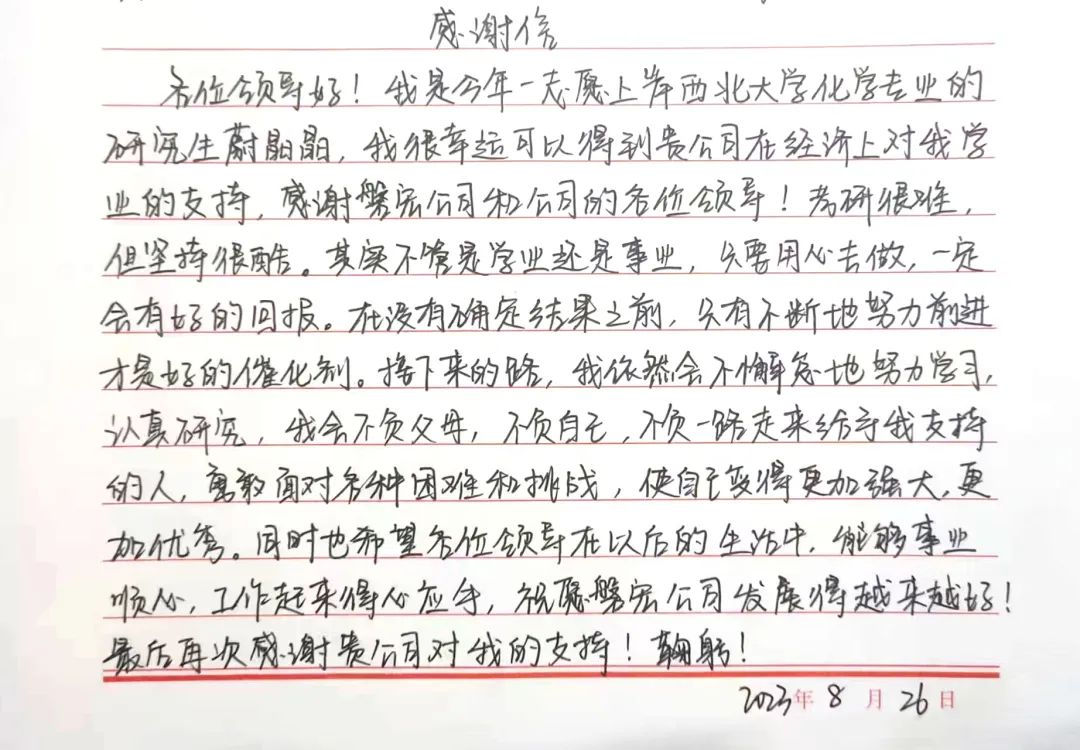 感谢信
各位领导好！我是今年一志愿上岸西北大学化学专业的
研究生蔚晶晶，我很幸运可以得到贵公司在经济上对我学
业的支持，感谢磐宏公司和公司的各位领导！考研很难，
但坚持很酷。其实不管是学业还是事业，只要用心去做，一定
会有好的回报。在没有确定结果之前，只有不断地努力前进
才是好的催化剂。接下来的路，我依然会不懈怠地努力学习，
认真研究，我会不负父母，不负自己，不负一路走来给予我支持
的人，勇敢面对各种困难和挑战，使自己变得更加强大，更
加优秀。同时也希望各位领导在以后的生活中，能够事业
顺心，工作起来得心应手，祝愿磐宏公司发展得越来越好！
最后再次感谢贵公司对我的支持！鞠躬！
2023年8月26日